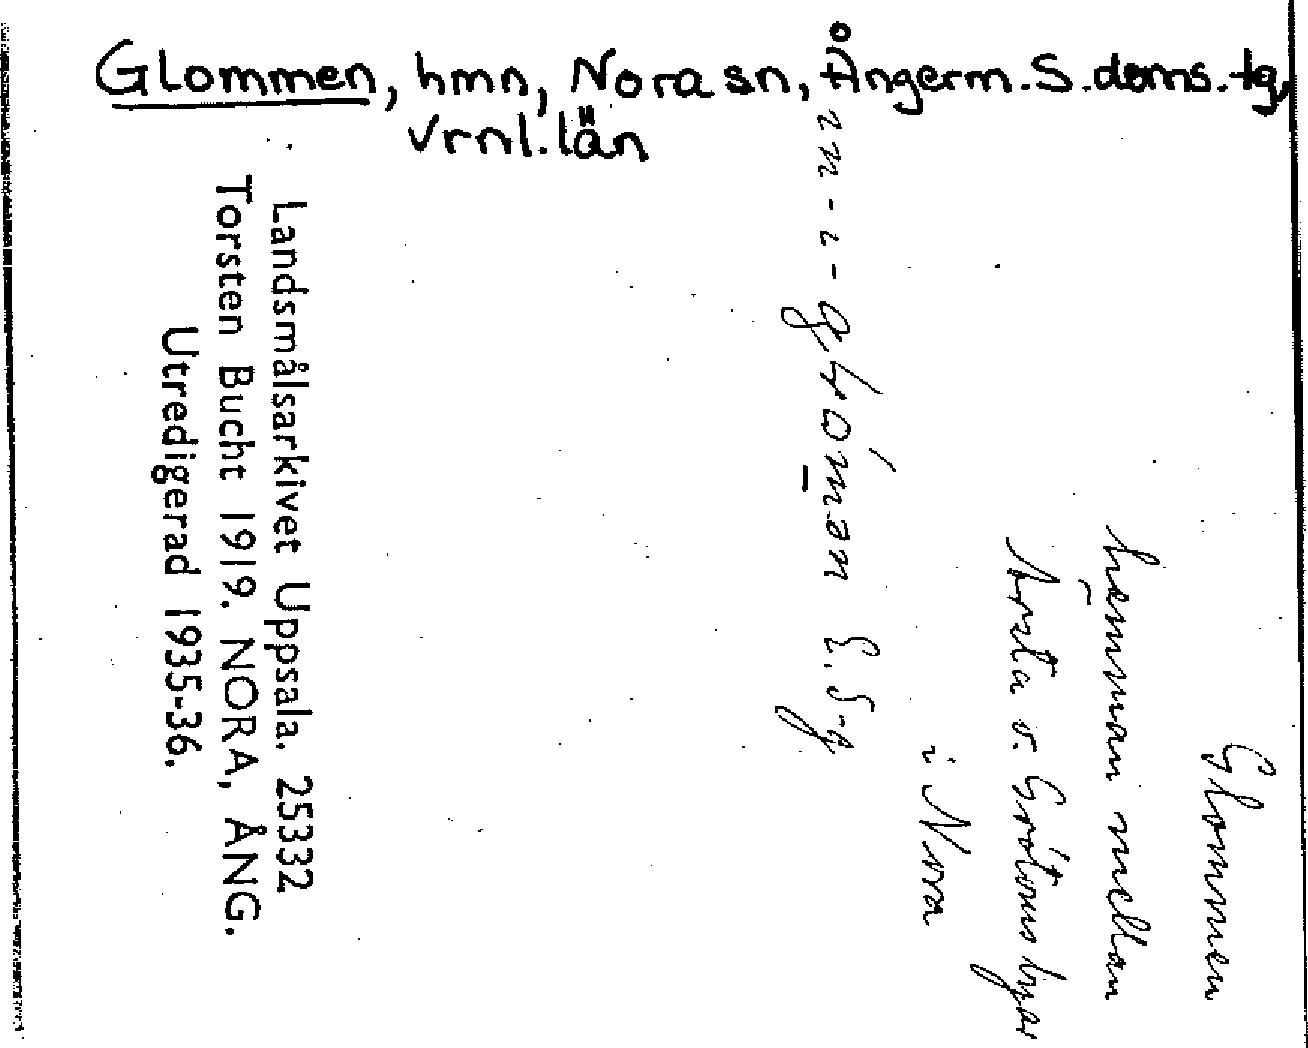 Glommen, hmn, Nora sn, Ångerm. S. doms. tg,
Vrnl. län
Glommen
hemman mellan
Arsta o. Grötoms byar
i Nora
E. S-g
Landsmålsarkivet Uppsala. 25332
Torsten Bucht 1919. NORA, ÅNG.
Utredigerad 1935-36.